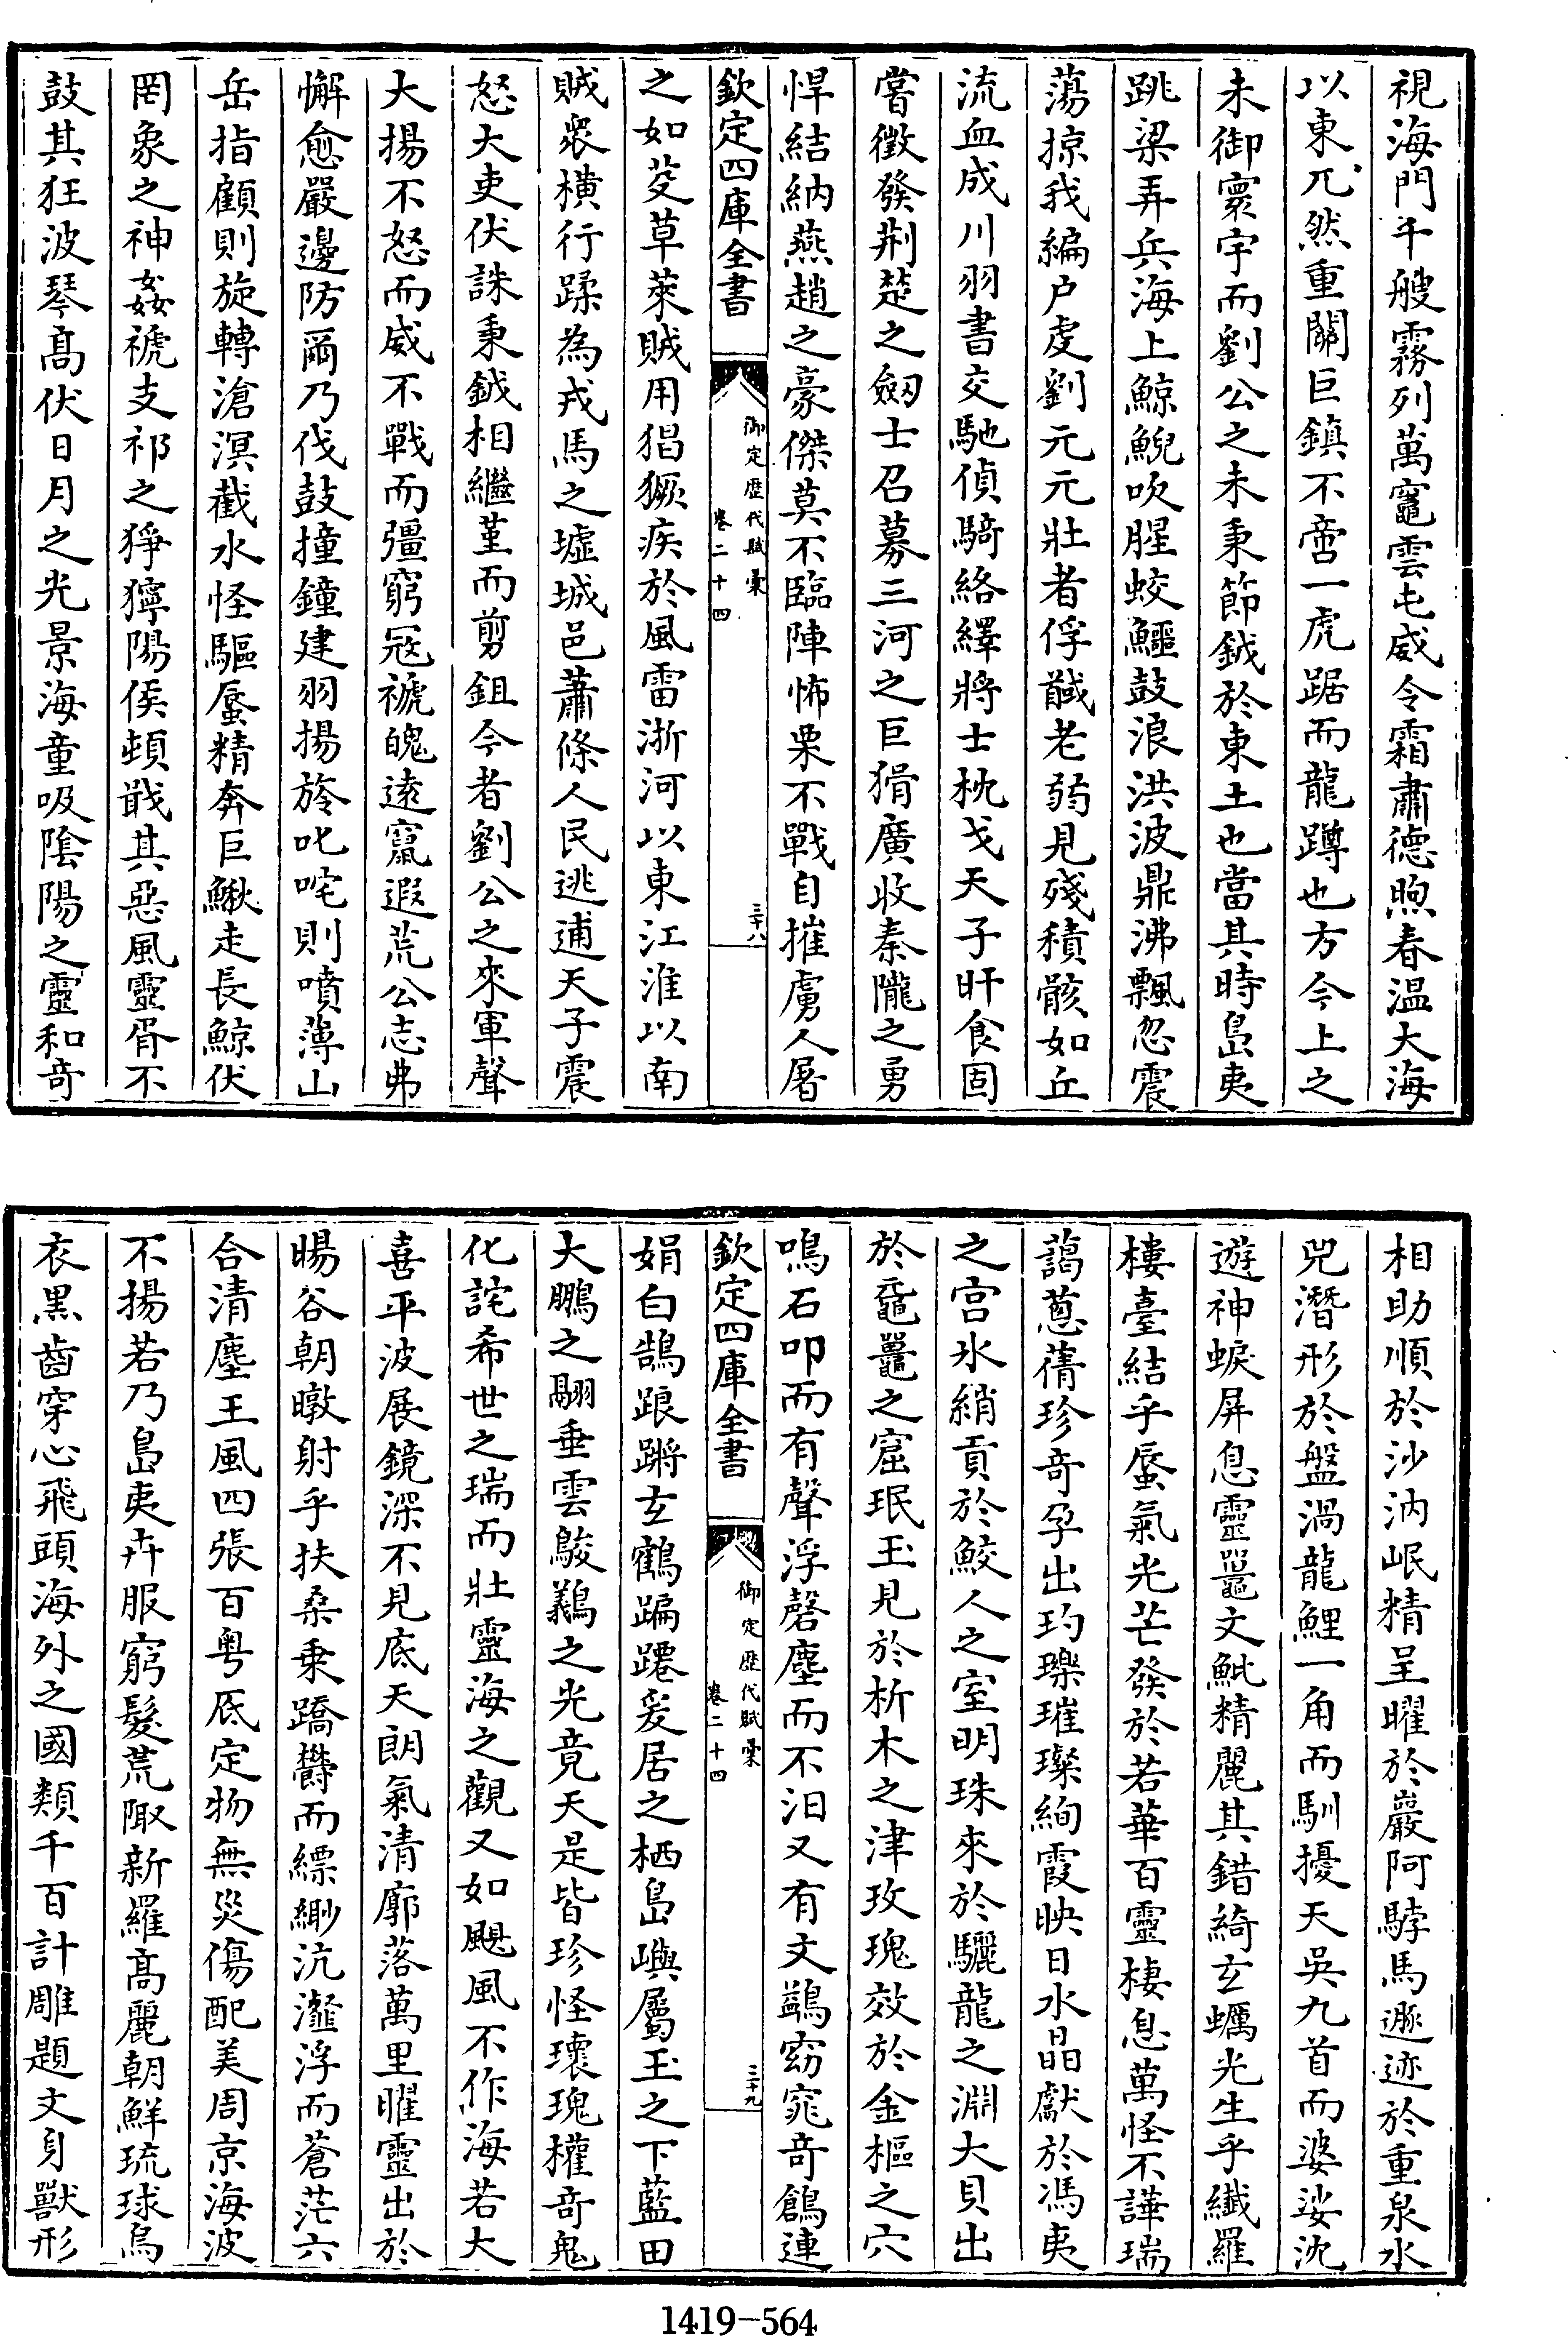 視海門千艘霧列萬竈雲屯威令霜肅德煦春温大海
以東兀然重關巨鎮不啻一虎踞而龍蹲也方今上之
未御寰宇而劉公之未秉節鉞於東土也當其時島夷
跳梁弄兵海上鯨鯢吹腥蛟鱷鼓浪洪波鼎沸飄忽震
蕩掠我編户虔劉元元壯者俘馘老弱見殘積骸如丘
流血成川羽書交馳偵騎絡繹將士枕戈天子旰食固
嘗徵發荆楚之劔士召募三河之巨猾廣收秦隴之勇
悍結納燕趙之豪傑莫不臨陣怖栗不戰自摧虜人屠
欽定四庫全書
御定歴代賦彙
卷二十四
三十八
之如芟草萊賊用猖獗疾於風雷浙河以東江淮以南
賊衆横行蹂為戎馬之墟城邑蕭條人民逃逋天子震
怒大吏伏誅秉鉞相繼菫而剪鉏今者劉公之來軍聲
大揚不怒而威不戰而彊窮冦禠魄遠竄遐荒公志弗
懈愈嚴邊防爾乃伐鼓撞鐘建羽揚旍叱咤則噴薄山
岳指顧則旋轉滄溟截水怪驅蜃精奔巨鰍走長鯨伏
罔象之神姦禠支祁之猙獰陽侯頓戢其惡風靈胥不
鼓其狂波琴髙伏日月之光景海童吸陰陽之靈和奇
相助順於沙汭岷精呈曜於巖阿騂馬遯迹於重泉水
兕潛形於盤渦龍鯉一角而馴擾天吳九首而婆娑沈
遊神蜧屏息靈鼉文魮精麗其錯綺玄蠣光生乎纎羅
樓臺結乎蜃氣光芒發於若華百靈棲息萬怪不譁瑞
藹葱蒨珍奇孕出玓瓅璀璨絢霞映日水晶獻於馮夷
之宫氷綃貢於鮫人之室明珠來於驪龍之淵大貝出
於黿鼉之窟珉玉見於析木之津玫瑰效於金樞之穴
鳴石叩而有聲浮磬塵而不汨又有文鷁窈窕奇鶬連
欽定四庫全書
御定歴代賦彙
卷二十四
三十九
娟白鵠踉蹡玄鶴蹁躚爰居之栖島嶼屬玉之下藍田
大鵬之翮垂雲鵔鸃之光竟天是皆珍怪瓌瑰權奇鬼
化詫希世之瑞而壯靈海之觀又如颶風不作海若大
喜平波展鏡深不見底天朗氣清廓落萬里曜靈出於
暘谷朝暾射乎扶桑乗蹻欎而縹緲沆瀣浮而蒼茫六
合清塵王風四張百粤厎定物無災傷配美周京海波
不揚若乃島夷卉服窮髮荒陬新羅髙麗朝鮮琉球烏
衣黒齒穿心飛頭海外之國類千百計雕題文身獸形
1419-564